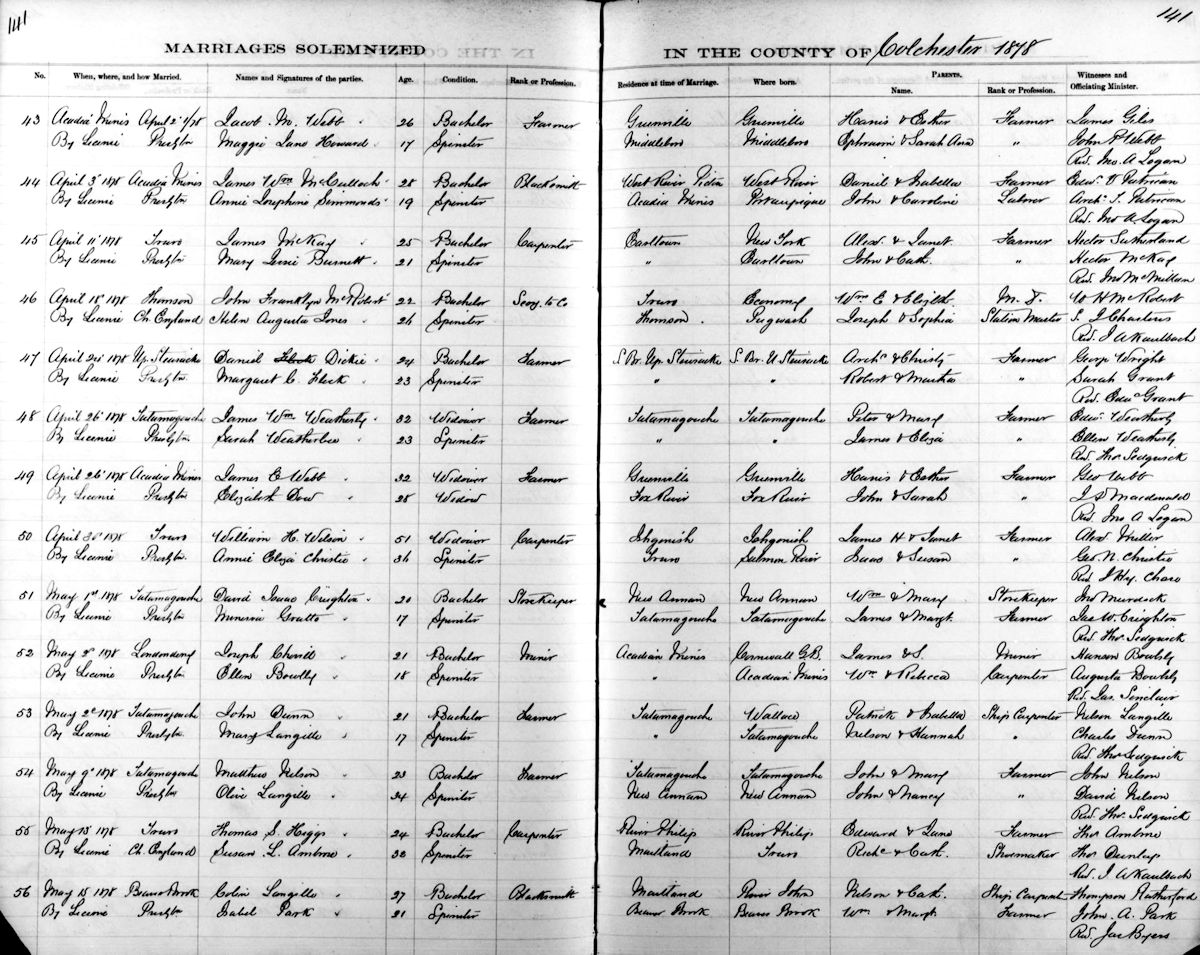 141
141
MARRIAGES SOLEMNIZED
IN THE COUNTY OF Colchester 1878
No. When, where, and how Married. Names and Signatures of the parties. Age. Condition. Rank or Profession. Residence at time of Marriage. Where born. PARENTS. Name. Rank or Profession. Witnesses and Officiating Minister.
43 Acadia Mines April 2d /78 Jacob M. Webb 26 Bachelor Farmer Greenville Greenville Harris & Esther Farmer James Giles
By Licence Presbytn Maggie Jane Howard 17 Spinster Middleboro Middleboro Ephraim & Sarah Ann " John P Webb
Rev. Jno. A Logan
44 April 3d 1878 Acadia Mines James Wm McCulloch 28 Bachelor Blacksmith West River Pictou West River Daniel & Isabella Farmer
By Licence Presbytn Annie Josephine Simmonds 19 Spinster Acadia Mines Portaupique John & Caroline Laborer
Rev. Jno A Logan
45 April 11th 1878 Truro James McKay 25 Bachelor Carpenter Earltown New York Alexr & Janet Farmer Hector Sutherland
By Licence Presbytn Mary Jessie Burnett 21 Spinster " Earltown John & Cath. " Hector McKay
Rev. Jno McMillan
46 April 18th 1878 Thomson John Franklyn McRobert 22 Bachelor Secy. to Co Truro Economy Wm E & Elizth M. D. W H McRobert
By Licence Ch. England Helen Augusta Jones 26 Spinster Thomson Pugwash Joseph & Sophia Station Master S. J Charters
Rev. J A Kaulbach
47 April 24th 1878 Up. Stewiacke Daniel Dickie 24 Bachelor Farmer S. Br. Up. Stewiacke S. Br. U Stewiacke Archd & Christy Farmer George Wright
By Licence Presbytn Margaret C. Fleck 23 Spinster " " Robert & Martha " Sarah Grant
Rev. Edwd Grant
48 April 26th 1878 Tatamagouche James Wm Weatherby 32 Widower Farmer Tatamagouche Tatamagouche Peter & Mary Farmer Edwd Weatherby
By Licence Presbytn Sarah Weatherbee 23 Spinster " " James & Eliza " Ellen Weatherby
Rev. Thos Sedgwick
49 April 26th 1878 Acadia Mines James E Webb 32 Widower Farmer Greenville Greenville Harris & Esther Farmer Geo Webb
By Licence Presbytn Elizabeth Dow 28 Widow Fox River Fox River John & Sarah " J D Macdonald
Rev. Jno A Logan
50 April 30th 1878 Truro William H. Wilson 51 Widower Carpenter Ishgonish Ishgonish James H & Janet Farmer Alexr Miller
By Licence Presbytn Annie Eliza Christie 36 Spinster Truro Salmon River Isaac & Susan " Geo. N. Christie
Rev. J Hy. Chase
51 May 1st 1878 Tatamagouche David Isaac Creighton 20 Bachelor Storekeeper New Annan New Annan Wm & Mary Storekeeper Jno Murdock
By Licence Presbytn Minervia Gratto 17 Spinster Tatamagouche Tatamagouche James & Margt. Farmer Jas W. Creighton
Rev. Thos. Sedgwick
52 May 2d 1878 Londonderry Joseph 21 Bachelor Miner Acadian Mines Cornwall G.B. James & S. Miner Hanson Bowlby
By Licence Presbytn Ellen Bowlby 18 Spinster " Acadian Mines Wm & Rebecca Carpenter Augusta Bowlby
Rev. Jas. Sinclair
53 May 2d 1878 Tatamagouche John Dunn 21 Bachelor Farmer Tatamagouche Wallace Patrick & Isabella Ship Carpenter Nelson Langille
By Licence Presbytn Mary Langille 17 Spinster " Tatamagouche Nelson & Hannah " Charles Dunn
Rev. Thos Sedgwick
54 May 9th 1878 Tatamagouche Matthew Nelson 23 Bachelor Farmer Tatamagouche Tatamagouche John & Mary Farmer John Nelson
By Licence Presbytn Olive Langille 34 Spinster New Annan New Annan John & Nancy " David Nelson
Rev. Thos. Sedgwick
55 May 13th 1878 Truro Thomas S. Higgs 24 Bachelor Carpenter River Philip River Philip Edward & Jane Farmer Thos Ambrose
By Licence Ch. England Susan L. Ambrose 32 Spinster Maitland Truro Richd & Cath. Shoemaker Thos Dunlap
Rev. J. A Kaulbach
56 May 15 1878 Beaver Brook Colin Langille 27 Bachelor Blacksmith Maitland River John Nelson & Cath. Ship Carpent Thompson Rutherford
By Licence Presbytn Isabel Park 21 Spinster Beaver Brook Beaver Brook Wm & Margt Farmer John. A. Park
Rev. Jas Byers